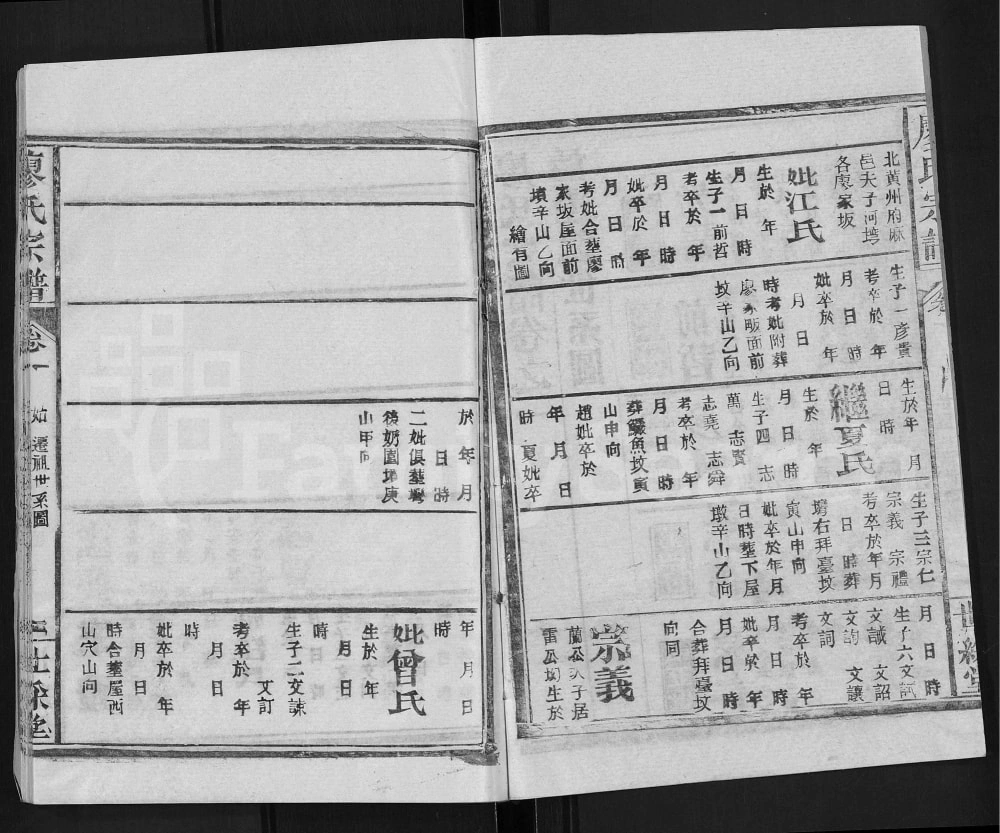 廖氏宗譜
北黄州府麻
邑夫子河塆
各廖家坂
妣江氏
生於 年
月 日 時
生子一前哲
考卒於 年
月 日 時
妣卒於 年
月 日 時
考妣合塟廖
家坂屋面前
墳辛山乙向
繪有圖
生子一彦貴
考卒於 年
月 日 時
妣卒於 年
月 日
時考妣附葬
廖家畈面前
坟辛山乙向
生於年 月
日 時
繼夏氏
生於 年
月 日 時
生子四 志
萬 志賢
志堯 志舜
考卒於 年
月 日 時
葬鱖魚坟寅
山申向
趙妣卒於
年 月 日
時 夏妣卒
生子三宗仁
宗義 宗禮
考卒於年月
日 時葬
塆右拜臺坟
寅山申向
妣卒於年月
日時塟下屋
墩辛山乙向
月 日 時
生子六文試
文誠 文詔
文詢 文讓
文詞
考卒於 年
月 日 時
妣卒於 年
月 日 時
合葬拜臺坟
向同
宗義
蘭公次子居
雷公坳生於
於 年 月
日 時
二妣俱塟塆
後奶園坪庚
山甲向
年 月 日
時
妣曾氏
生於 年
月 日
時
生子二文諫
文訂
考卒於 年
月 日
時
妣卒於 年
月 日
時合塟屋西
山穴山向
廖氏宗譜
卷一
始遷祖世系圖